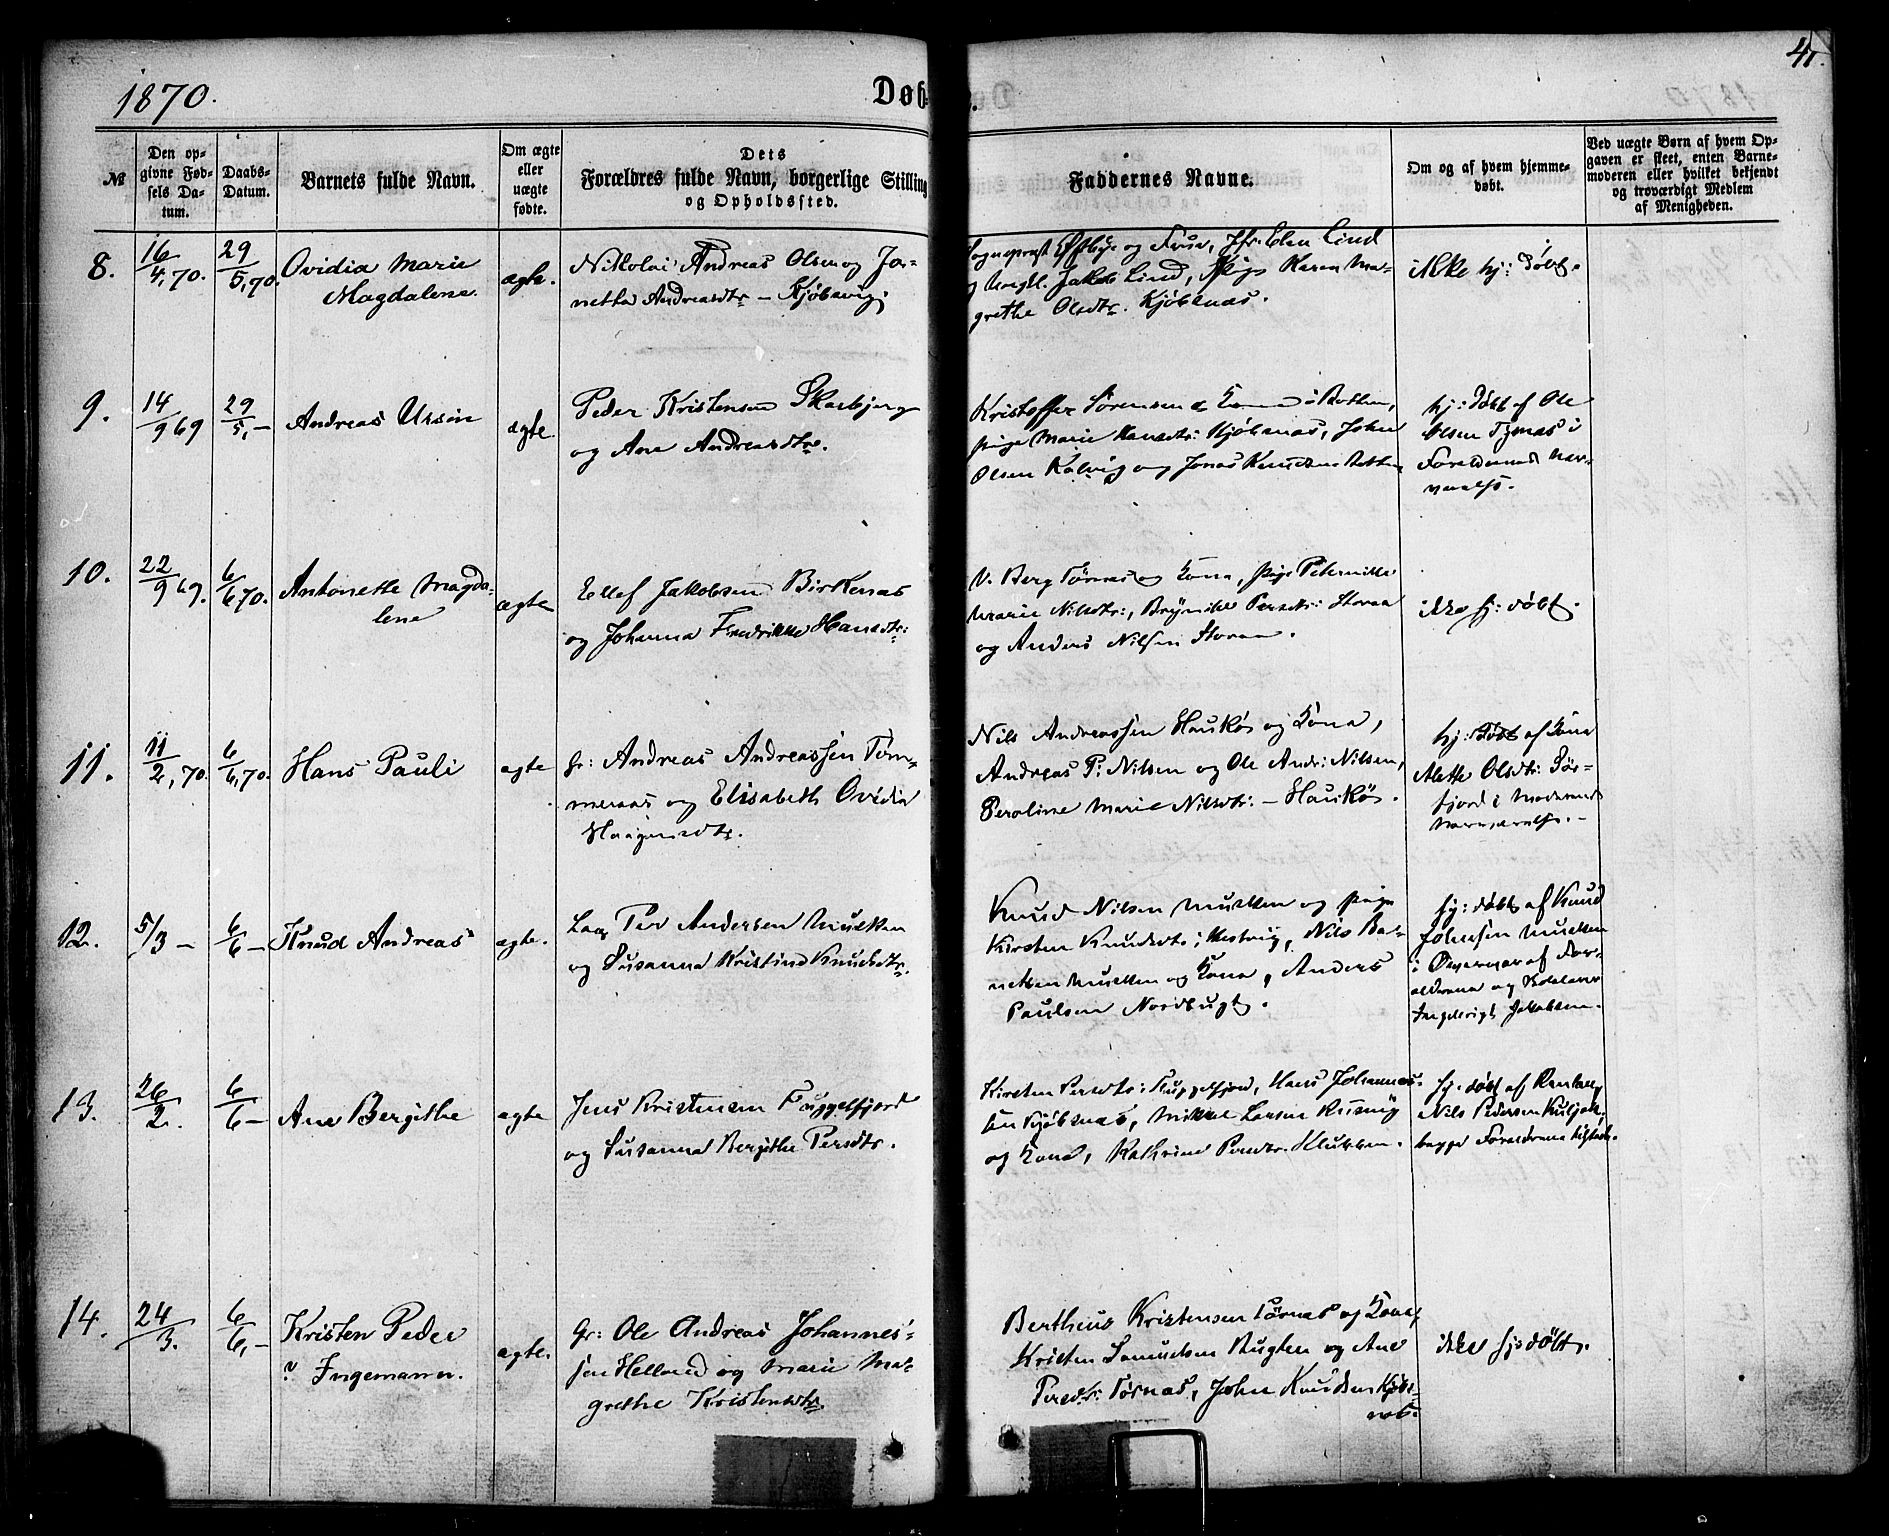 1870.
Døb-
41.
№
Den op-
givne Fød-
sels Da-
tum.
Daabs-
Datum.
Barnets fulde Navn.
Om ægte
eller
uægte
fødte.
Dets
Forældres fulde Navn, borgerlige Stilling
og Opholdssted.
Faddernes Navne.
Om og af hvem hjemme-
døbt.
Ved uægte Børn af hvem Op-
gaven er skeet, enten Barne-
moderen eller hvilket bekjendt
og troværdigt Medlem
af Menigheden.
8.
16/4,70.
29/5,70.
Ovidia Marie
Magdalene.
ægte.
Nikolai Andreas Olsen og Ja-
netta Andreasdtr – Kjøbsvig
Sognepræst og Frue, Jfr. Elen Lind
og Jakob Lind, Pige Karen Ma-
grethe Olsdtr. Kjøbsnæs.
ikke hj: døbt.
9.
14/9 69
29/5,–
Andreas Ursin
ægte
Peder Kristensen Skarbjerg
og Ane Andreasdtr.
Kristoffer Sørensen & Kona i Botten,
pige Marie Hansdtr: Kjøbsnæs, John
Olsen Kalvig og Jonas Knudsen Botten
hj: døbt af Ole
Olsen Tysnæs i
Forældrenes nær-
værelse.
10.
22/9 69.
6/6,70.
Antonette Magda-
lene
ægte
Ellef Jakobsen Birkenæs
og Johanna Fredrikke Hansdtr:
Berg Tørnæs og Kona, pige Peternille
Marie Nilsdtr:, Persdtr: Storaa
og Anders Nilsen Storaa.
ikke hj: døbt.
11.
11/2,70.
6/6,70.
Hans Pauli
ægte
Gr: Andreas Andreassen Tøm-
meraas og Elisabeth Ovidia
Haagensdtr.
Nils Andreassen Haukø og Kona,
Andreas P: Nilsen og Ole Andr: Nilsen,
Peroline Marie Nilsdtr: – Haukø.
hj: døbt af Kona
Alette Olsdtr: Sør-
fjord i Moderens
nærværelse. –
12.
5/3 –
6/6 –
Knud Andreas
ægte.
Laag Per Andersen Mulken
og Susanna Kristine Knudsdtr.
Knud Nilsen Mulken og pige
Kirsten Knudsdtr: Hestvig, Nils Ba-
Mulken og Kona, Anders
Paulsen Nordbugt.
hj: døbt af Knud
Johnsen Mulken
i Overvær af For-
ældrene og
Ingebrigt Jakobsen.
13.
26/2.
6/6 –
Ane Bergithe
ægte
Jens Kristensen Fuggelfjord
og Susanna Bergithe Persdtr.
Kirsten Persdtr: Fuggelfjord, Hans Johannes-
sen Kjøbsnæs, Mikkel Larsen
og Kona, Kathrine Persdtr. Klubben.
hj. døbt af
Nils Pedersen
begge Forældrene tilstede.
14.
24/3.
6/6,–
Kristen Peder
? Ingemann.
ægte.
Gr: Ole Andreas Johannes-
sen Helland og Marie Ma-
grethe Kristensdtr
Bertheus Kristensen Tørnæs og Kona,
Kristen Samuelsen Bugten og Ane
Persdtr: Tørnæs, John Knudsen Kjøbs-
næs.
ikke hj: døbt.